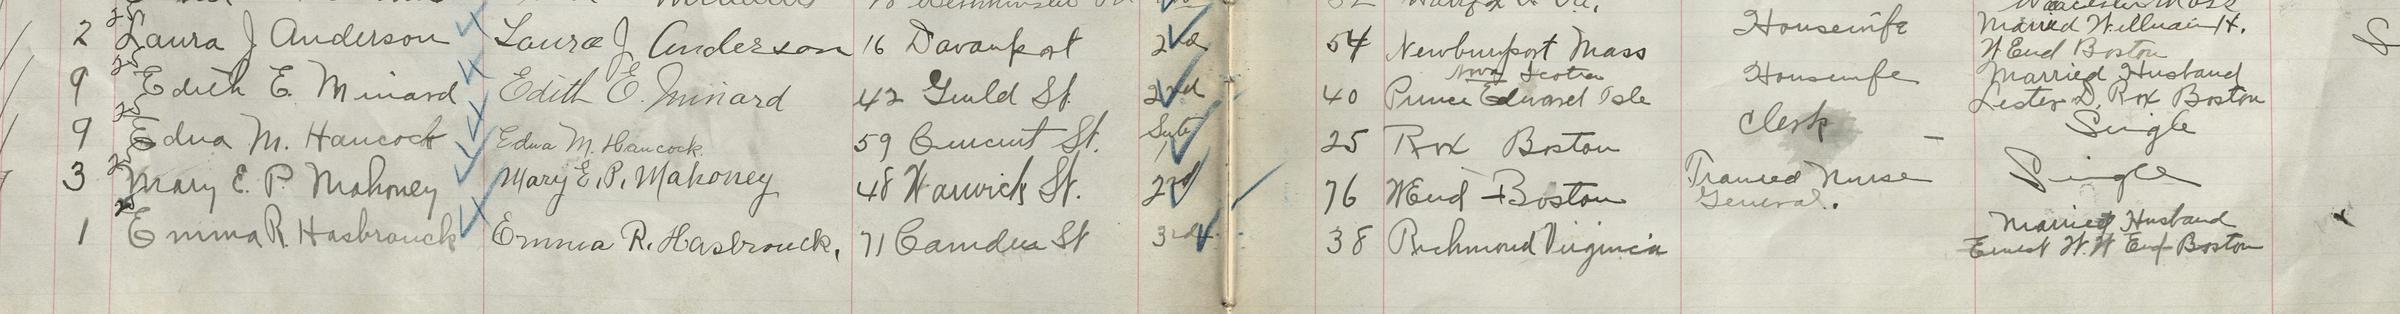 2 Laura J Anderson Laura J Anderson 16 Davenport 2nd 54 Newburyport Mass Housewife Married William H. W End Boston
9 Edith E. Minard Edith E. Minard 42 Guild St. 2nd 40 Nova Scotia Prince Edward Isle Housewife Married Husband Lester D. Rox Boston
9 Edna M. Hancock Edna M. Hancock. 59 St. 25 Rox Boston Clerk - Single
3 Mary E. P. Mahoney Mary E. P. Mahoney 48 Warwick St. 2nd 76 W End Boston Trained Nurse General. Single
1 Emma R. Hasbrouck Emma R. Hasbrouck. 71 Camden St 3rd 38 Richmond Virginia Married Husband Ernest W. W End Boston